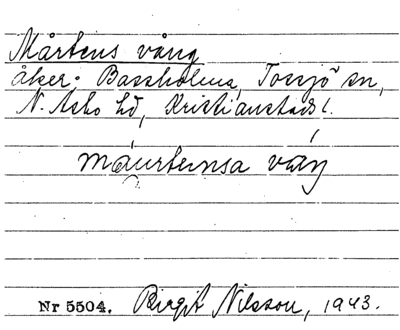 Mårtens vång
åker: Bassholma, Tossjö sn,
N. Asbo hd, Kristianstads l.
måurteṛnsa váŋ
Nr 5504. Birgit Nilsson, 1943.